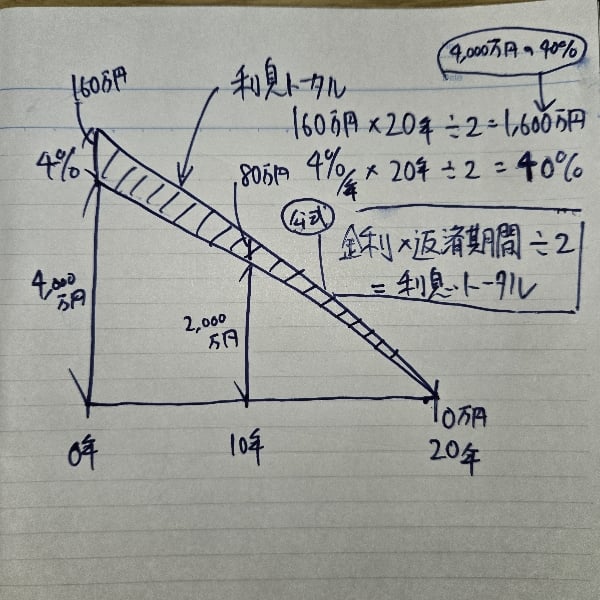 4,000万円の40%
160万円
利息トータル
160万円×20年÷2=1,600万円
4%
80万円
4%/年×20年÷2=40%
公式
金利×返済期間÷2
=利息トータル
4,000
万円
2,000
万円
0万円
0年
10年
20年